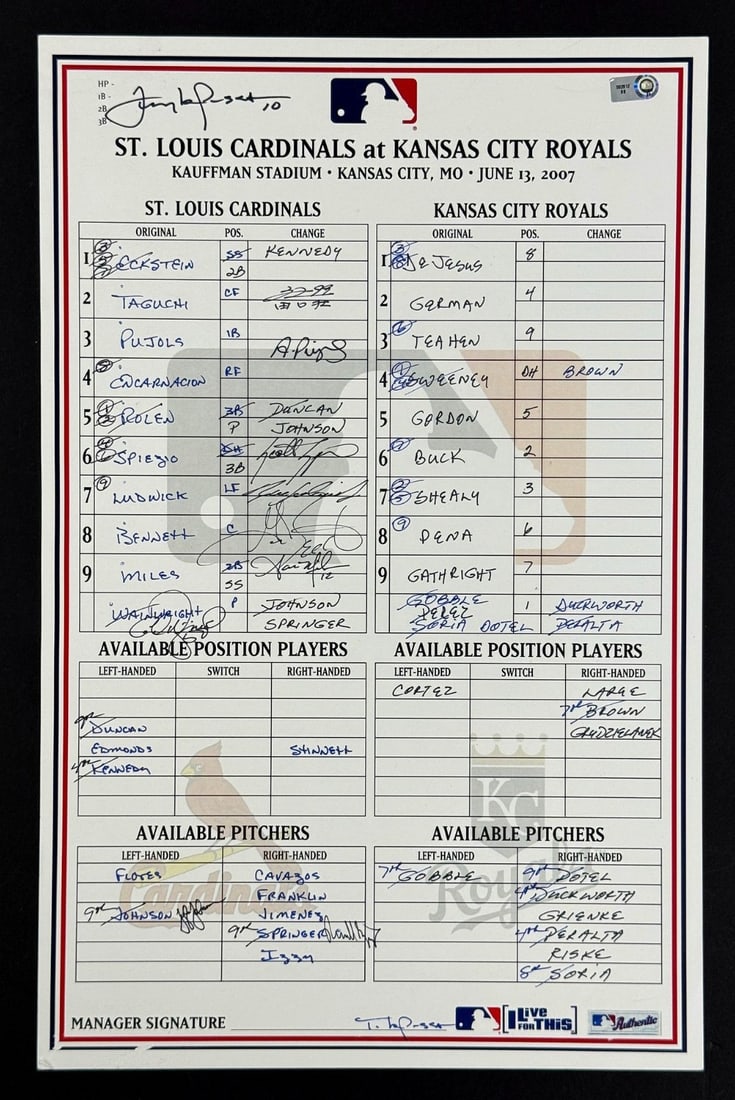 HP -
1B -
2B -
3B -
10
ST. LOUIS CARDINALS at KANSAS CITY ROYALS
KAUFFMAN STADIUM · KANSAS CITY, MO · JUNE 13, 2007
ST. LOUIS CARDINALS
ORIGINAL POS. CHANGE
1 ECKSTEIN SS KENNEDY
2B
2 TAGUCHI CF 99
田口壮
3 PUJOLS 1B
4 ENCARNACION RF
5 ROLEN 3B DUNCAN
P JOHNSON
6 SPIEZIO DH
3B
7 LUDWICK LF
8 BENNETT C
9 MILES 2B
SS 12
WAINWRIGHT P JOHNSON
SPRINGER
KANSAS CITY ROYALS
ORIGINAL POS. CHANGE
1 DeJESUS 8
2 GERMAN 4
3 TEAHEN 9
4 SWEENEY DH BROWN
5 GORDON 5
6 BUCK 2
7 SHEALY 3
8 PENA 6
9 GATHRIGHT 7
GOBBLE
PEREZ 1 DUCKWORTH
SORIA DOTEL PERALTA
AVAILABLE POSITION PLAYERS
LEFT-HANDED SWITCH RIGHT-HANDED
DUNCAN
EDMONDS STINNETT
KENNEDY
AVAILABLE POSITION PLAYERS
LEFT-HANDED SWITCH RIGHT-HANDED
CORTEZ LARGE
7th BROWN
GRUDZIELANEK
AVAILABLE PITCHERS
LEFT-HANDED RIGHT-HANDED
FLORES CAVAZOS
FRANKLIN
JOHNSON JIMENEZ
SPRINGER
IZZY
AVAILABLE PITCHERS
LEFT-HANDED RIGHT-HANDED
7th GOBBLE DOTEL
DUCKWORTH
GRIENKE
PERALTA
RISKE
SORIA
Cardinals
KC
Royals
MANAGER SIGNATURE
I Live FOR THIS
Authentic